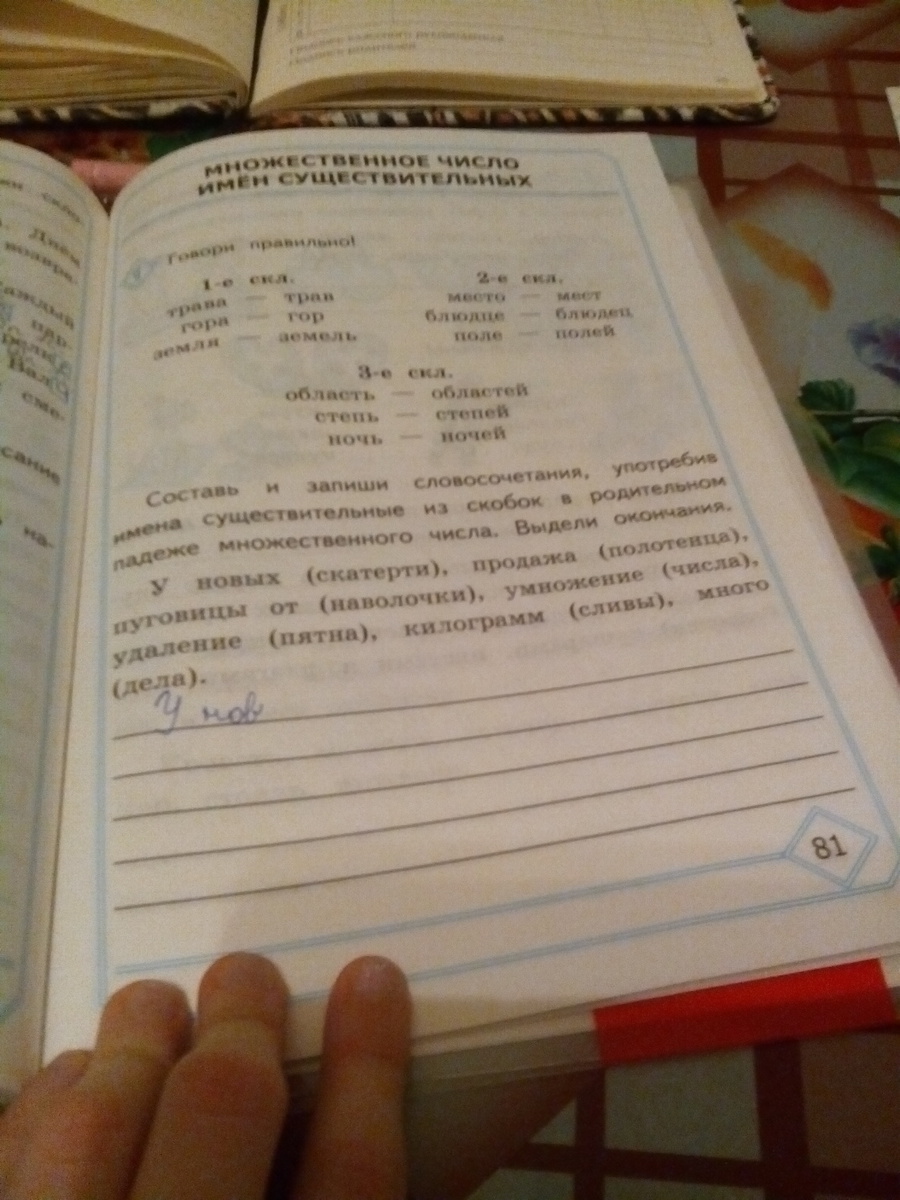 МНОЖЕСТВЕННОЕ ЧИСЛО
ИМЁН СУЩЕСТВИТЕЛЬНЫХ
Говори правильно!
1-е скл.
трава — трав
гора — гор
земля — земель
2-е скл.
место — мест
блюдце — блюдец
поле — полей
3-е скл.
область — областей
степь — степей
ночь — ночей
Составь и запиши словосочетания, употребив
имена существительные из скобок в родительном
падеже множественного числа. Выдели окончания.
У новых (скатерти), продажа (полотенца),
пуговицы от (наволочки), умножение (числа),
удаление (пятна), килограмм (сливы), много
(дела).
У нов
81